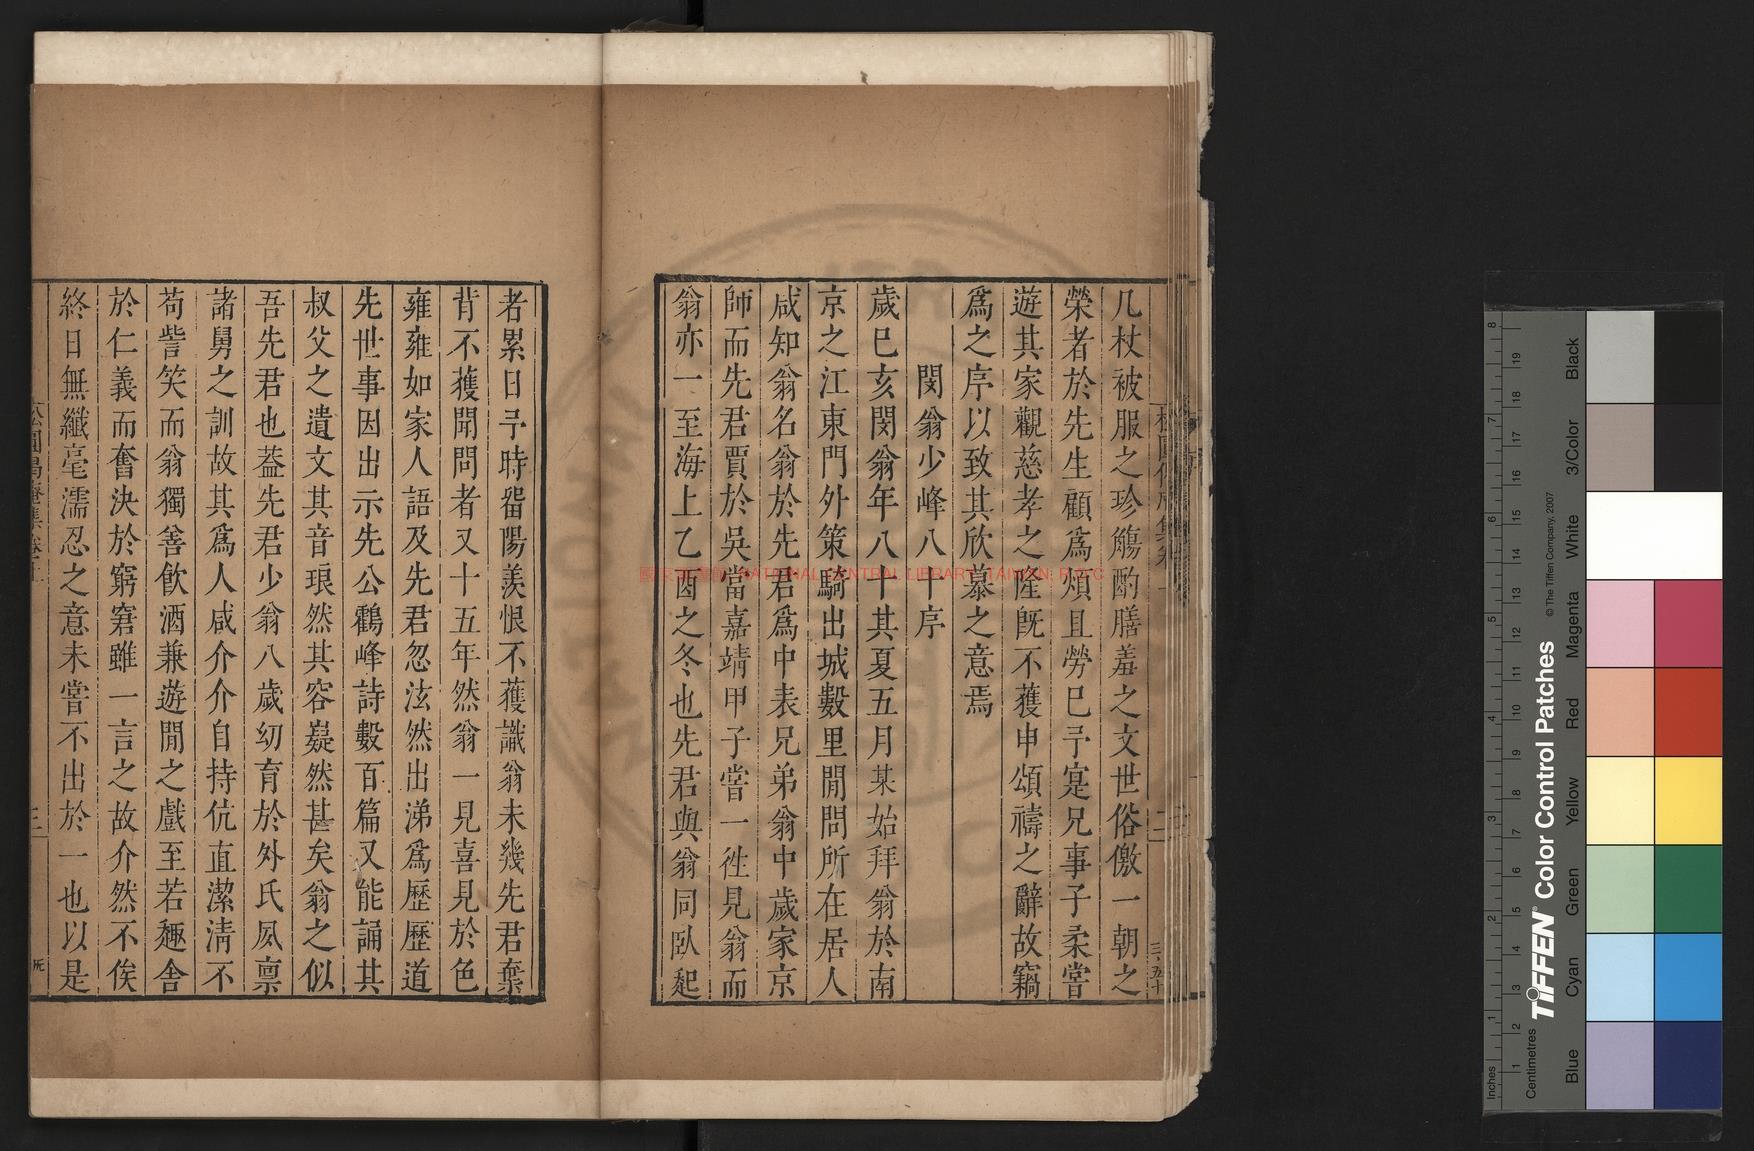 几杖被服之珍觴酌膳羞之文世俗儌一朝之
榮者於先生顧爲煩且勞巳予寔兄事子柔嘗
遊其家觀慈孝之隆旣不獲申頌禱之辭故竊
爲之序以致其欣慕之意焉
閔翁少峰八十序
歲巳亥閔翁年八十其夏五月某始拜翁於南
京之江東門外策騎出城數里閒問所在居人
咸知翁名翁於先君爲中表兄弟翁中歲家京
師而先君賈於吳當嘉靖甲子嘗一徃見翁而
翁亦一至海上乙酉之冬也先君與翁同臥起
者累日予時畱陽羨恨不獲識翁未幾先君棄
背不獲聞問者又十五年然翁一見喜見於色
雍雍如家人語及先君忽泫然出涕爲歷歷道
先世事因出示先公鶴峰詩數百篇又能誦其
叔父之遺文其音琅然其容嶷然甚矣翁之似
吾先君也葢先君少翁八歲幼育於外氏夙禀
諸舅之訓故其爲人咸介介自持伉直潔淸不
苟訾笑而翁獨善飮酒兼遊閒之戲至若趣舍
於仁義而奮決於窮窘雖一言之故介然不俟
終日無纖毫濡忍之意未嘗不出於一也以是
國家圖書館 NATIONAL CENTRAL LIBRARY, TAIWAN, R.O.C
Inches
Centimetres
TIFFEN® Color Control Patches
© The Tiffen Company, 2007
Blue
Cyan
Green
Yellow
Red
Magenta
White
3/Color
Black